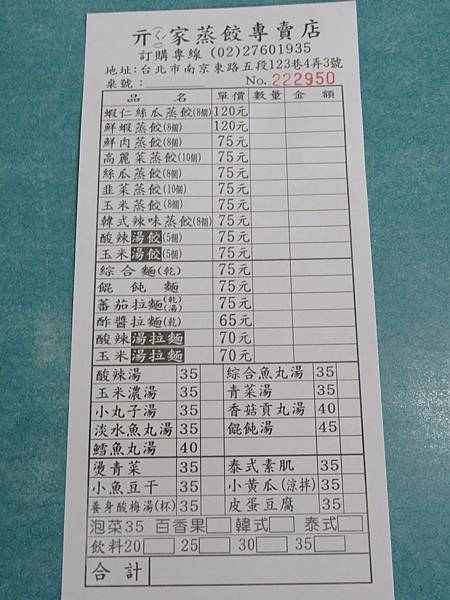 亓家蒸餃專賣店
訂購專線 (02)27601935
地址:台北市南京東路五段123巷4弄3號
桌號: No. 222950
品名 單價 數量 金額
蝦仁絲瓜蒸餃(8個) 120元
鮮蝦蒸餃(8個) 120元
鮮肉蒸餃(8個) 75元
高麗菜蒸餃(10個) 75元
絲瓜蒸餃(8個) 75元
韭菜蒸餃(10個) 75元
玉米蒸餃(8個) 75元
韓式辣味蒸餃(8個) 75元
酸辣湯餃(5個) 75元
玉米湯餃(5個) 75元
綜合麵(乾) 75元
餛飩麵 75元
蕃茄拉麵(乾湯) 75元
酢醬拉麵(乾) 65元
酸辣湯拉麵 70元
玉米湯拉麵 70元
酸辣湯 35 綜合魚丸湯 35
玉米濃湯 35 青菜湯 35
小丸子湯 35 香菇貢丸湯 40
淡水魚丸湯 35 餛飩湯 45
鱈魚丸湯 40
燙青菜 35 泰式素肌 35
小魚豆干 35 小黃瓜(涼拌) 35
養身酸梅湯(杯) 35 皮蛋豆腐 35
泡菜35 百香果 韓式 泰式
飲料20 25 30 35
合計